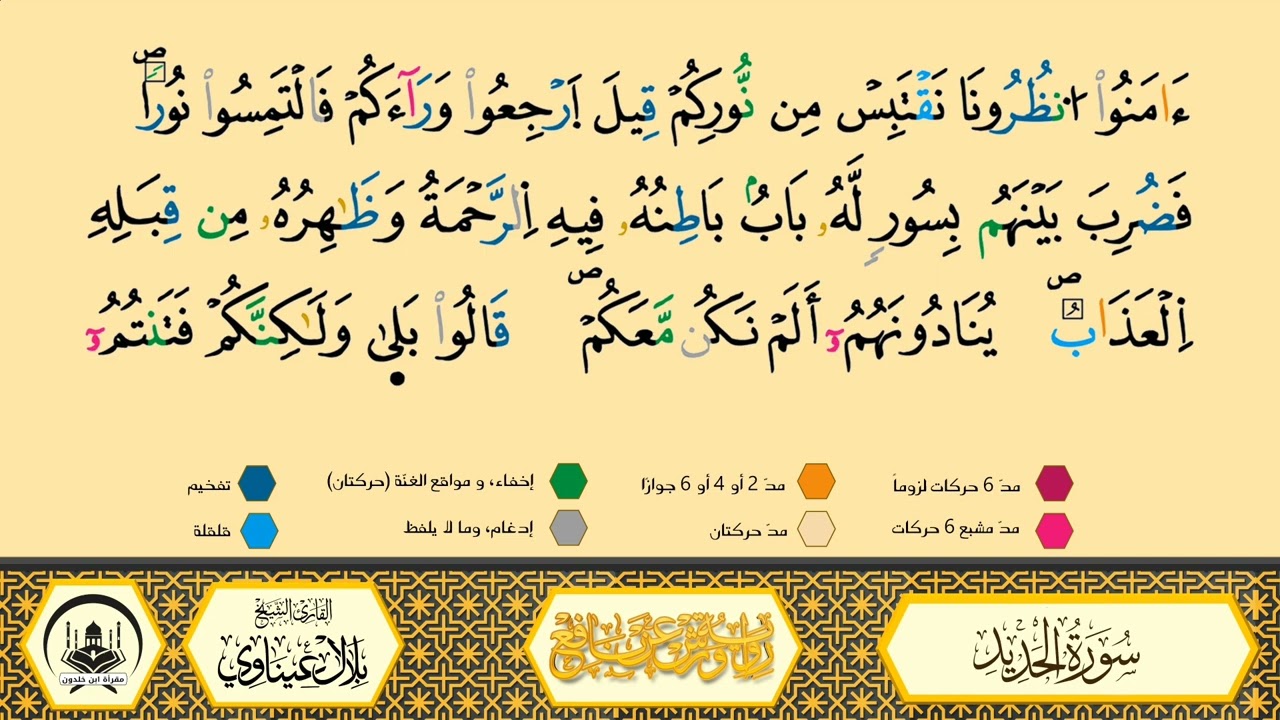 ءَامَنُوا۟ اُ۟نظُرُونَا نَقْتَبِسْ مِن نُّورِكُمْ قِيلَ اَ۪رْجِعُوا۟ وَرَآءَكُمْ فَالْتَمِسُوا۟ نُوراٗۖ
فَضُرِبَ بَيْنَهُم بِسُورٖ لَّهُۥ بَابُۢ بَاطِنُهُۥ فِيهِ اِ۬لرَّحْمَةُ وَظَٰهِرُهُۥ مِن قِبَلِهِ
اِ۬لْعَذَابُۖ يُنَادُونَهُمُۥٓ أَلَمْ نَكُن مَّعَكُمْۖ قَالُوا۟ بَل۪ىٰ وَلَٰكِنَّكُمْ فَتَنتُمُۥٓ
مدّ 6 حركات لزوماً
مدّ 2 أو 4 أو 6 جوازًا
إخفاء، و مواقع الغنّة (حركتان)
تفخيم
مدّ مشبع 6 حركات
مدّ حركتان
إدغام، وما لا يلفظ
قلقلة
سُورَةُ الحَدِيدِ
رواية ورش عن نافع
القارئ الشيخ
بلال عيناوي
مقرأة ابن خلدون